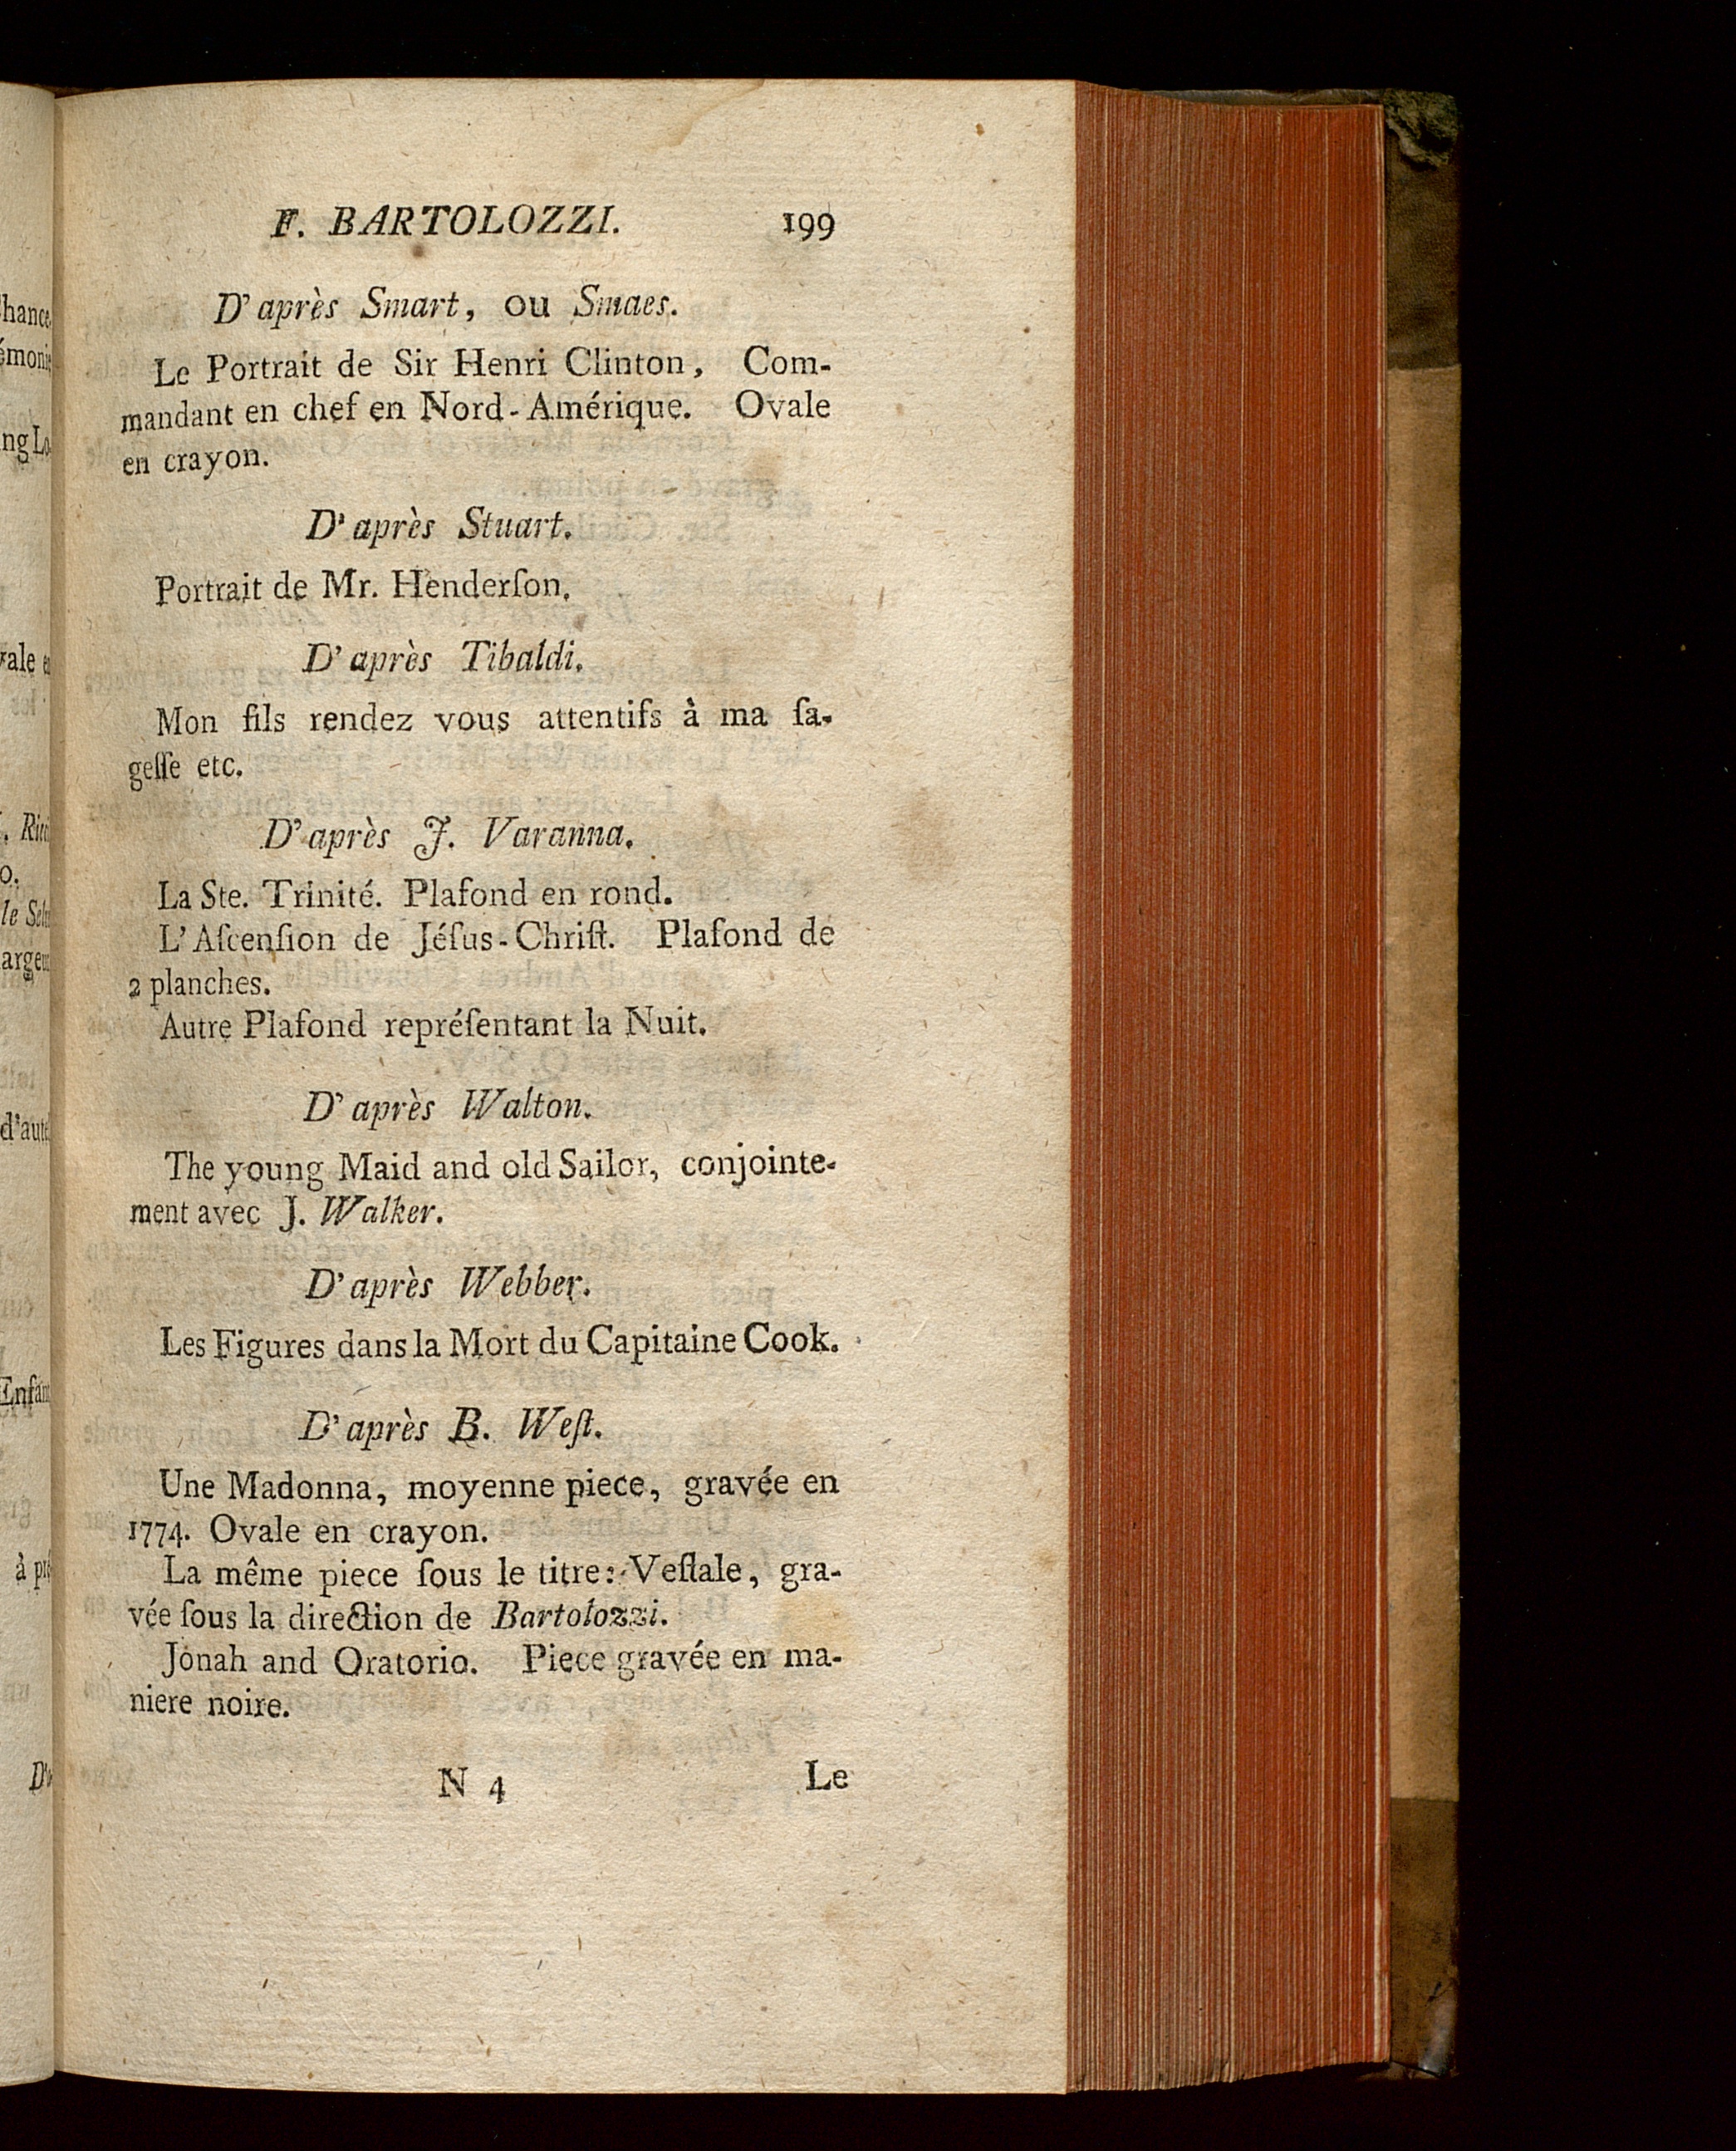 F. BARTOLOZZI. 199
D'après Smart, ou Smaes.
Le Portrait de Sir Henri Clinton, Com-
mandant en chef en Nord-Amérique. Ovale
en crayon.
D'après Stuart.
Portrait de Mr. Henderſon.
D'après Tibaldi.
Mon fils rendez vous attentifs à ma ſa-
geſſe etc.
D'après J. Varanna.
La Ste. Trinité. Plafond en rond.
L'Aſcenſion de Jéſus-Chriſt. Plafond de
2 planches.
Autre Plafond repréſentant la Nuit.
D'après Walton.
The young Maid and old Sailor, conjointe-
ment avec J. Walker.
D'après Webber.
Les Figures dans la Mort du Capitaine Cook.
D'après B. Weſt.
Une Madonna, moyenne piece, gravée en
1774. Ovale en crayon.
La même piece ſous le titre: Veſtale, gra-
vée ſous la direction de Bartolozzi.
Jonah and Oratorio. Piece gravée en ma-
niere noire.
N 4 Le